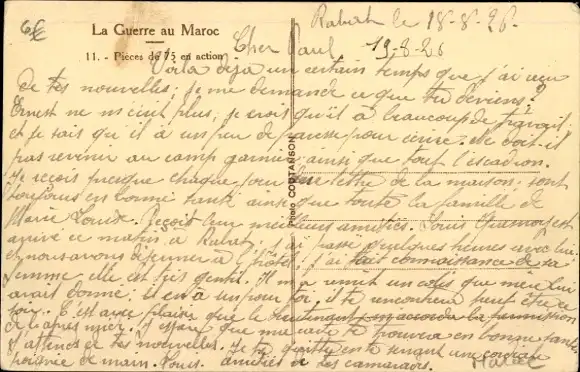 6€
La Guerre au Maroc
11. - Pièces de 75 en action
Photo COUTANSON
Rabat le 18-8-26.
19-8-26
Cher Paul
Voila déja un certain temps que j'ai reçu
de tes nouvelles; je me demande ce que tu deviens?
Ernest ne m'écrit plus; je crois qu'il a beaucoup de travail
et je sais qu'il a un peu de paresse pour écrire. Ne doit-il
pas revenir au camp garnier ainsi que tout l'escadron.
Je reçois presque chaque jour une lettre de la maison; sont
toujours en bonne santé ainsi que toute la famille de
Marie Louise. Reçois leur meilleurs amitiés. Louis est
arrivé ce matin à Rabat, j'ai passé quelques heures avec lui.
et nous avons déjeuner à l'hôtel; j'ai fait connaissance de sa
femme elle est très gentil. Il m'a remit un colis que
avait donné; il est à un peut être ce
soir. C'est avec plaisir que le lieutenant m'accorda la permission
de l'après midi. J'espère que ma carte te trouvera en bonne santé
J'attends de tes nouvelles. Je te quitte en te serrant une cordiale
poignée de main. Louis. amitiés à tes camarades.
Maroc